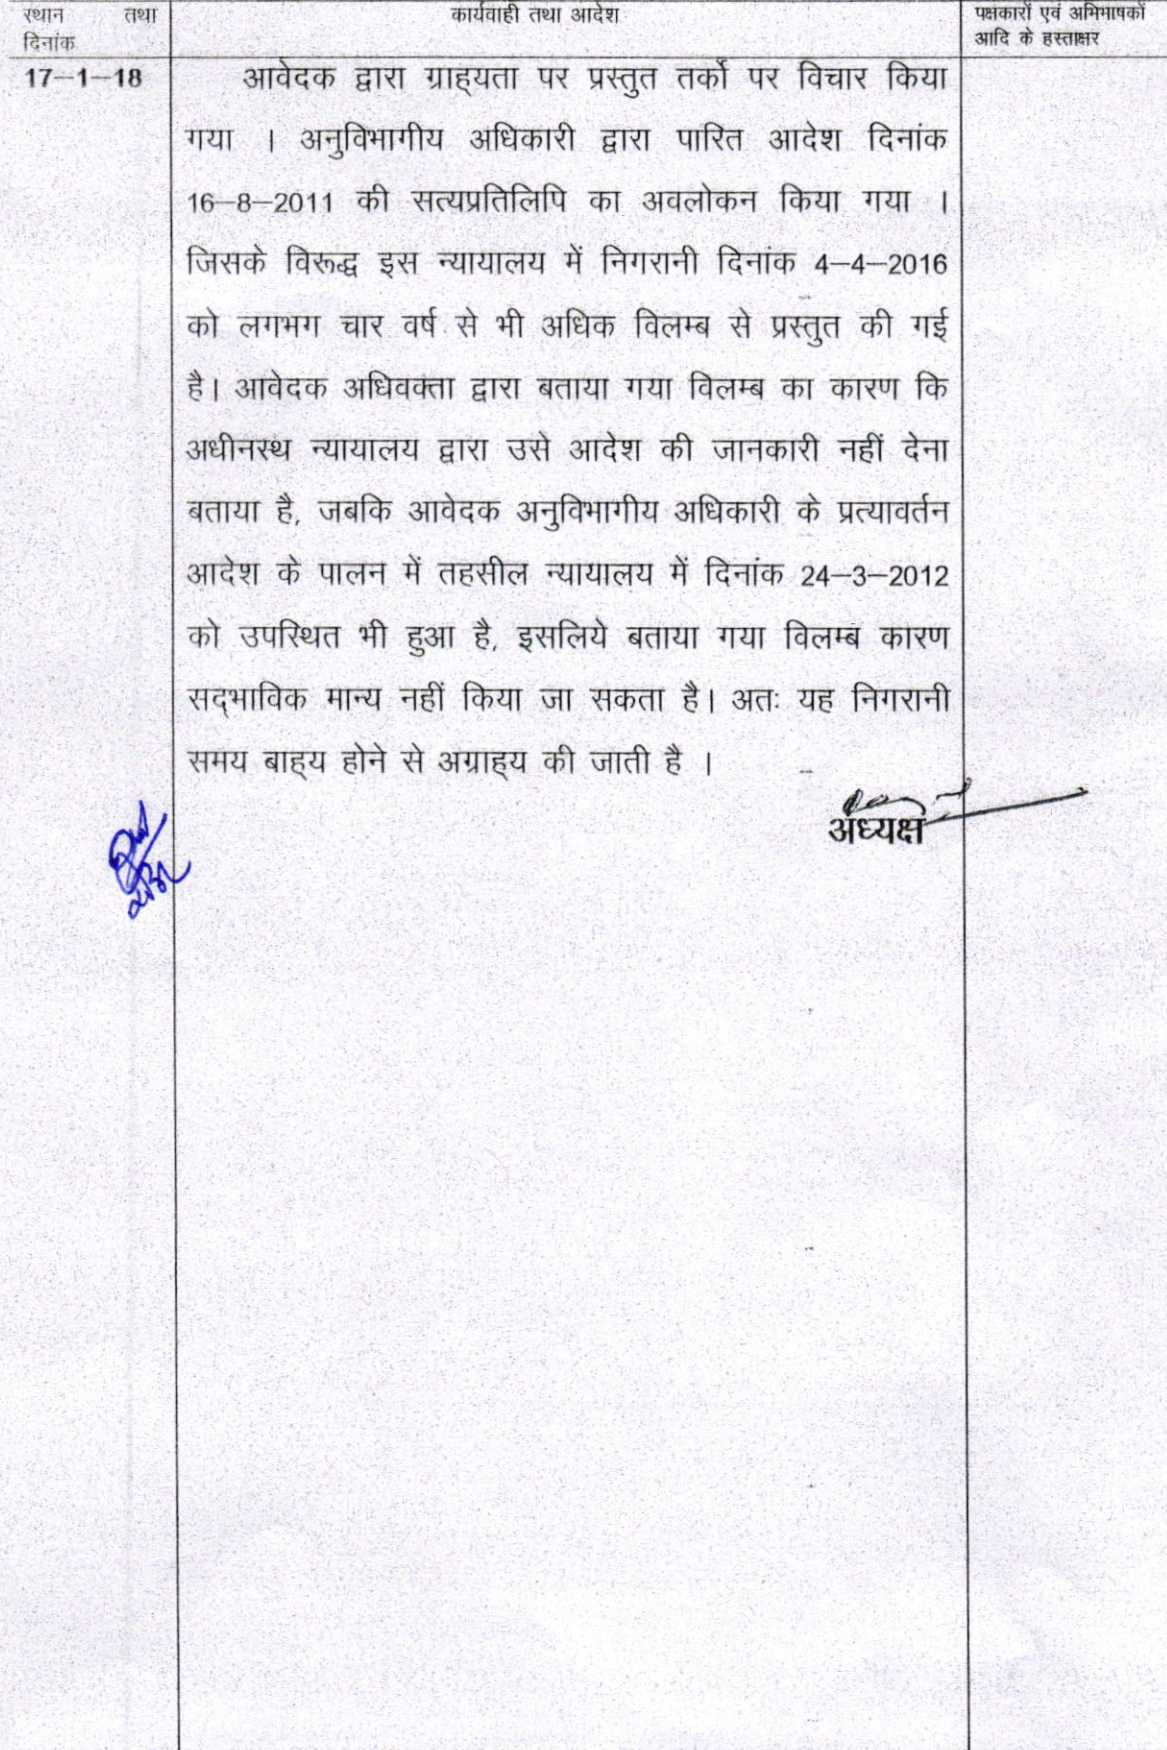 स्थान तथा
दिनांक
कार्यवाही तथा आदेश
पक्षकारों एवं अभिभाषकों
आदि के हस्ताक्षर
17–1–18
आवेदक द्वारा ग्राह्यता पर प्रस्तुत तर्को पर विचार किया
गया । अनुविभागीय अधिकारी द्वारा पारित आदेश दिनांक
16–8–2011 की सत्यप्रतिलिपि का अवलोकन किया गया ।
जिसके विरूद्ध इस न्यायालय में निगरानी दिनांक 4–4–2016
को लगभग चार वर्ष से भी अधिक विलम्ब से प्रस्तुत की गई
है। आवेदक अधिवक्ता द्वारा बताया गया विलम्ब का कारण कि
अधीनस्थ न्यायालय द्वारा उसे आदेश की जानकारी नहीं देना
बताया है, जबकि आवेदक अनुविभागीय अधिकारी के प्रत्यावर्तन
आदेश के पालन में तहसील न्यायालय में दिनांक 24–3–2012
को उपस्थित भी हुआ है, इसलिये बताया गया विलम्ब कारण
सद्भाविक मान्य नहीं किया जा सकता है। अतः यह निगरानी
समय बाह्य होने से अग्राह्य की जाती है ।
अध्यक्ष